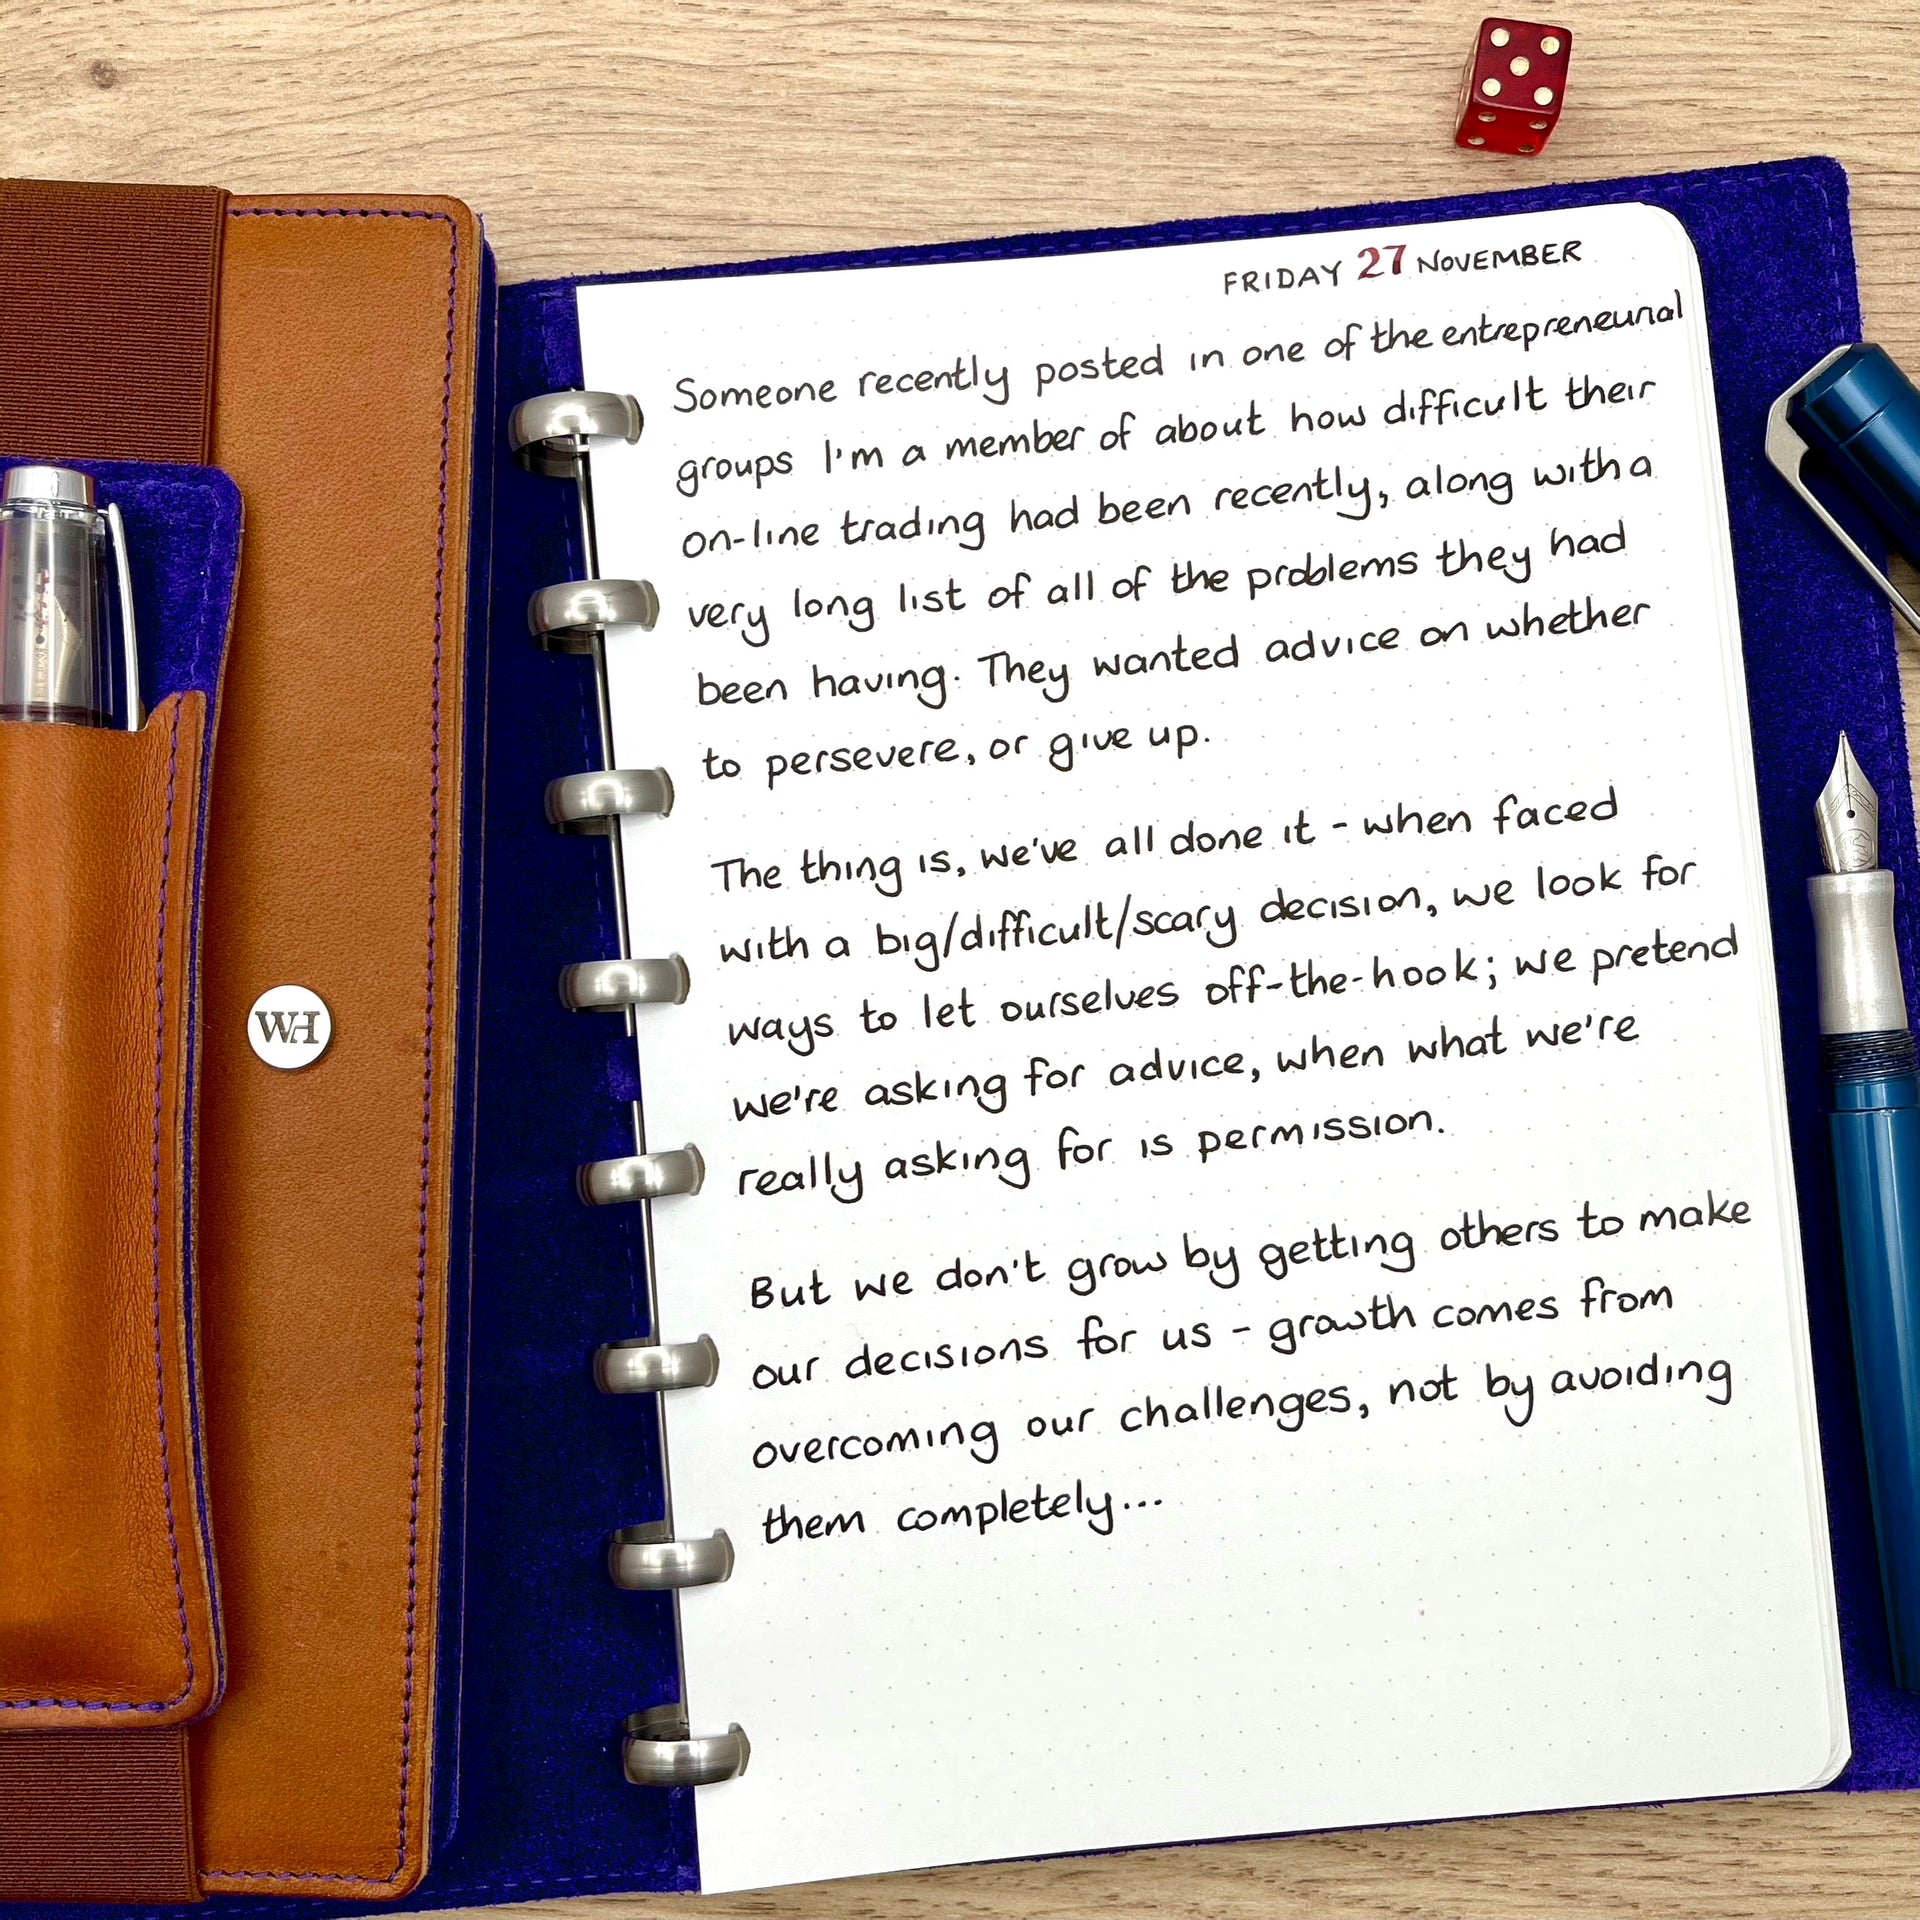 FRIDAY 27 NOVEMBER
Someone recently posted in one of the entrepreneurial
groups I'm a member of about how difficult their
on-line trading had been recently, along with a
very long list of all of the problems they had
been having. They wanted advice on whether
to persevere, or give up.
The thing is, we've all done it - when faced
with a big/difficult/scary decision, we look for
ways to let ourselves off-the-hook; we pretend
we're asking for advice, when what we're
really asking for is permission.
But we don't grow by getting others to make
our decisions for us - growth comes from
overcoming our challenges, not by avoiding
them completely...
WH